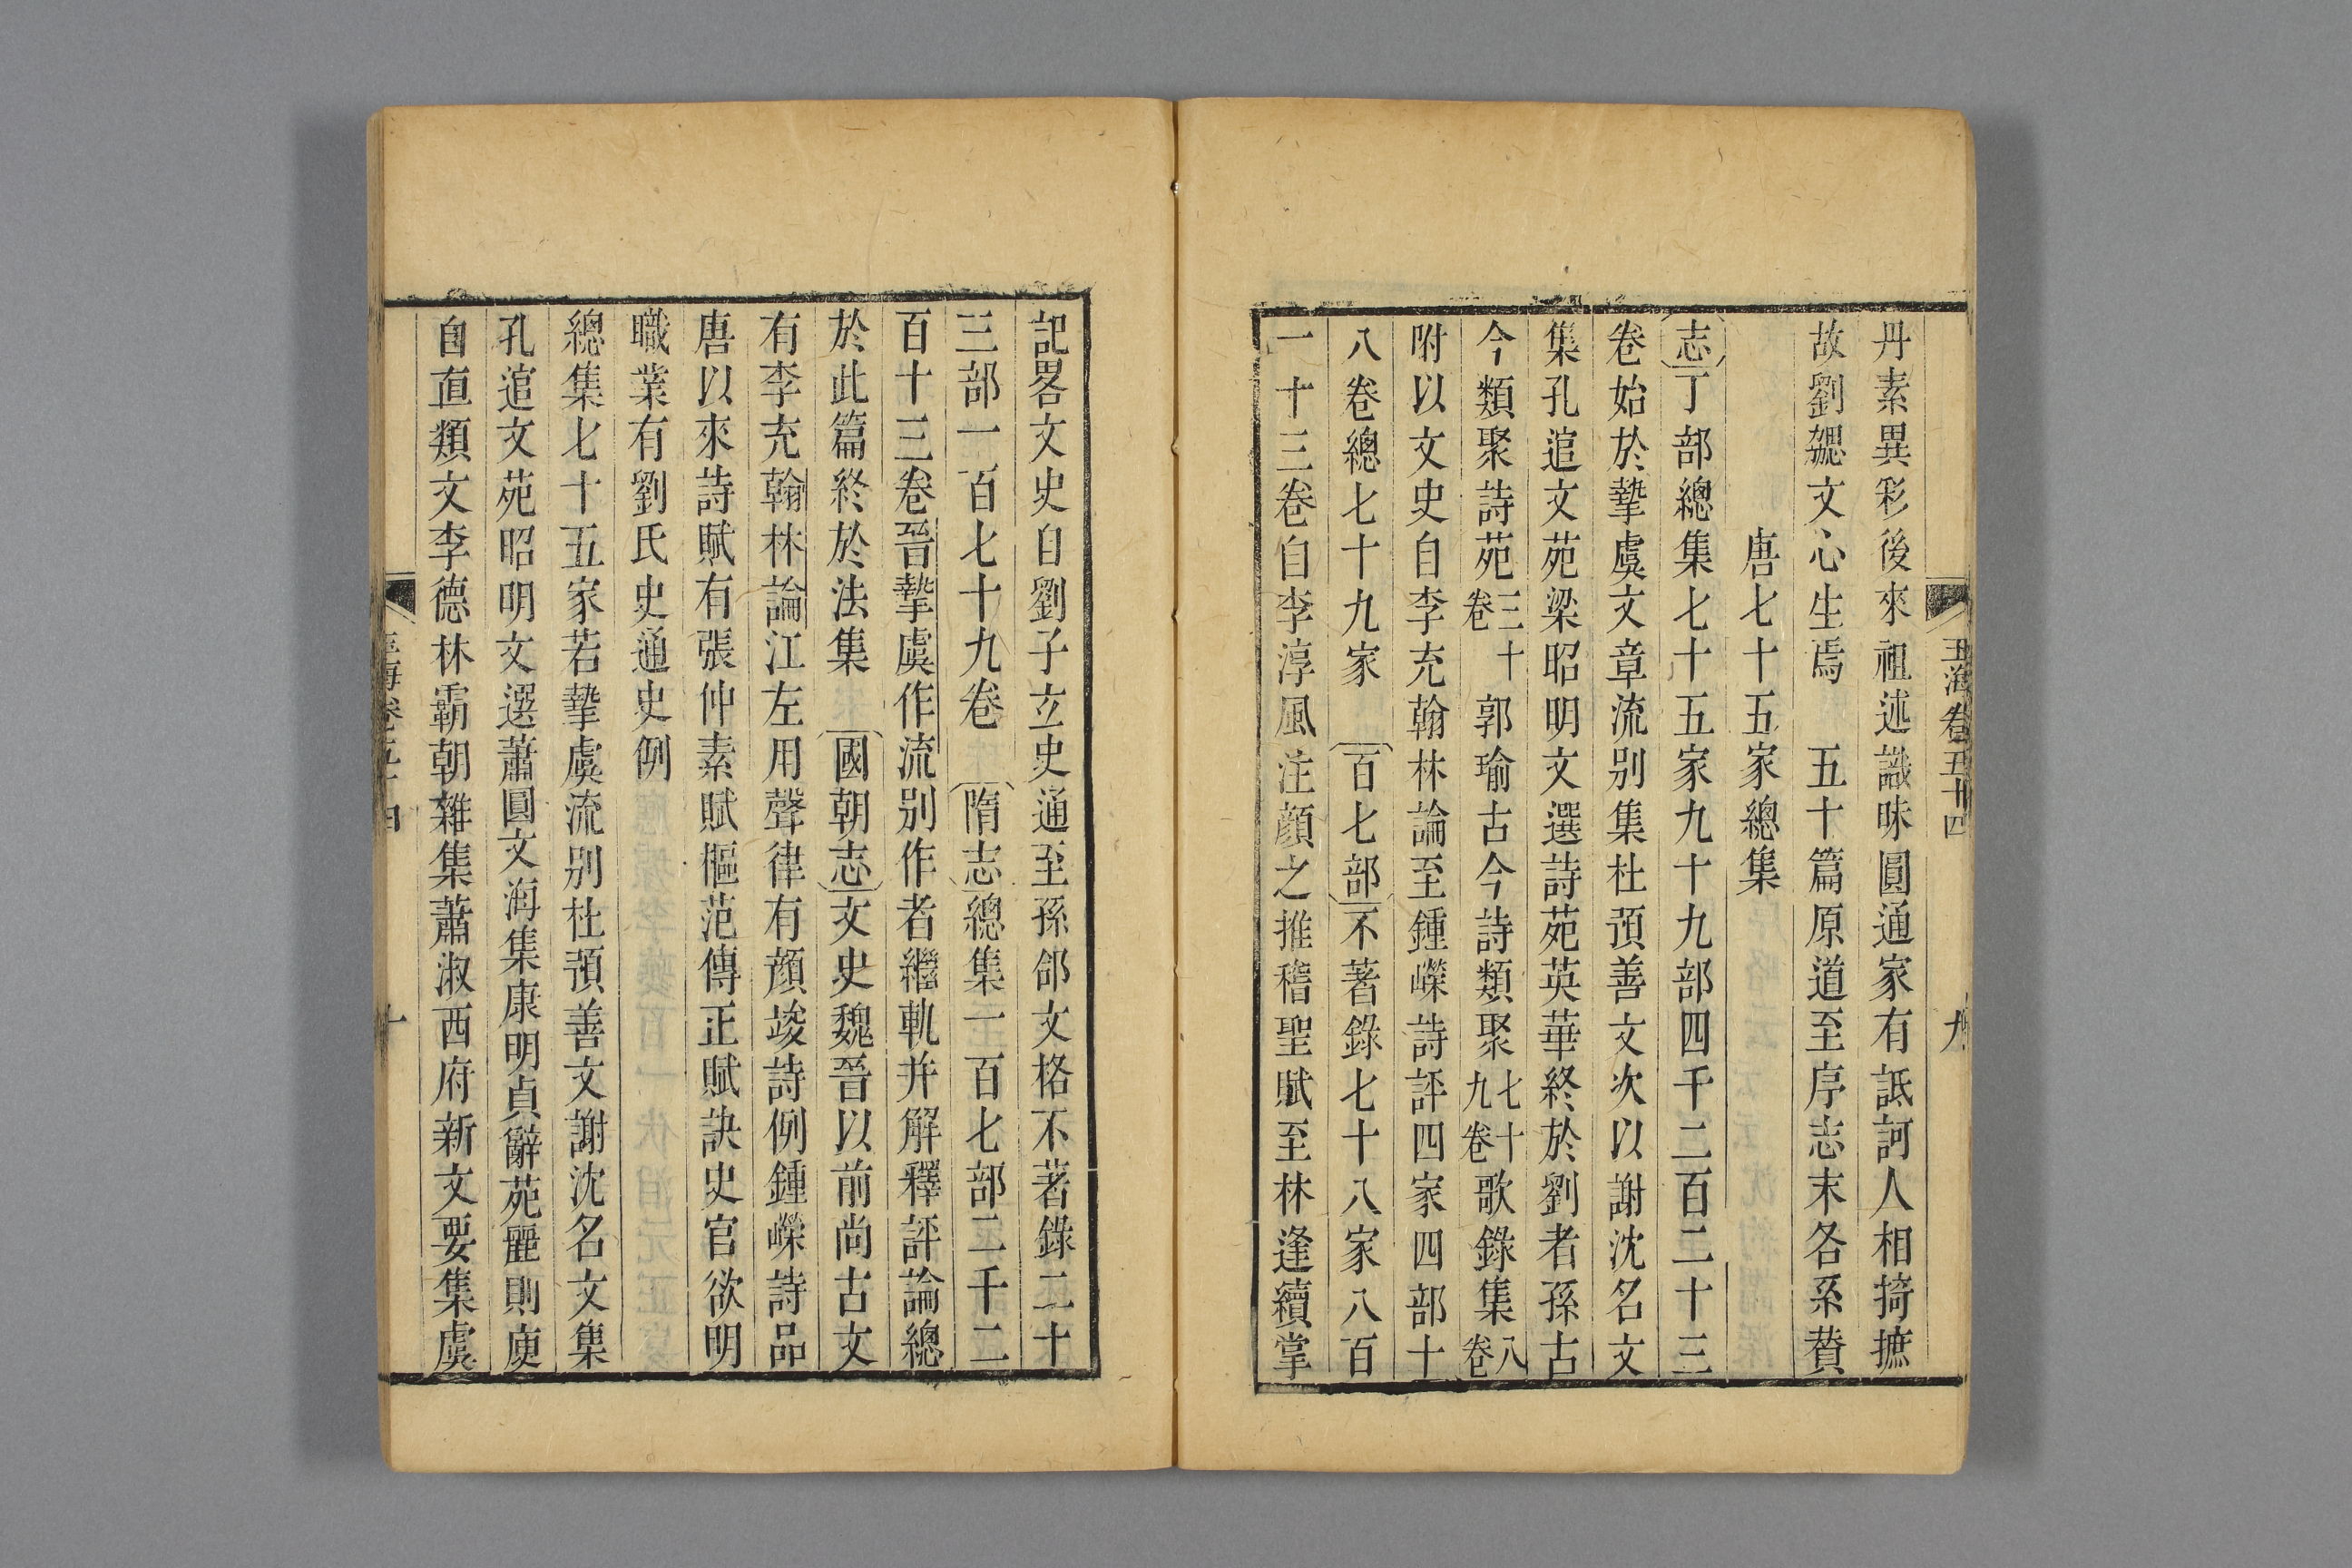 玉海卷五十四 九
丹素異彩後來祖述識昧圓通家有詆訶人相掎摭
故劉勰文心生焉 五十篇原道至序志末各系賛
唐七十五家總集
志丁部總集七十五家九十九部四千二百二十三
卷始於摯虞文章流别集杜預善文次以謝沈名文
集孔逭文苑梁昭明文選詩苑英華終於劉者孫古
今類聚詩苑三十卷 郭瑜古今詩類聚七十九卷歌錄集八卷
附以文史自李充翰林論至鍾嶸詩評四家四部十
八卷總七十九家 百七部不著錄七十八家八百
一十三卷自李淳風注顔之推稽聖賦至林逢續掌
記畧文史自劉子立史通至孫郃文格不著錄二十
三部一百七十九卷 隋志總集一百七部二千二
百十三卷晉摯虞作流别作者繼軌并解釋評論總
於此篇終於法集 國朝志文史魏晉以前尚古文
有李充翰林論江左用聲律有顔竣詩例鍾嶸詩品
唐以來詩賦有張仲素賦樞范傳正賦訣史官欲明
職業有劉氏史通史例
總集七十五家若摯虞流别杜預善文謝沈名文集
孔逭文苑昭明文選蕭圓文海集康明貞辭苑麗則庾
自直類文李德林霸朝雜集蕭淑西府新文要集虞
玉海卷五十四 十